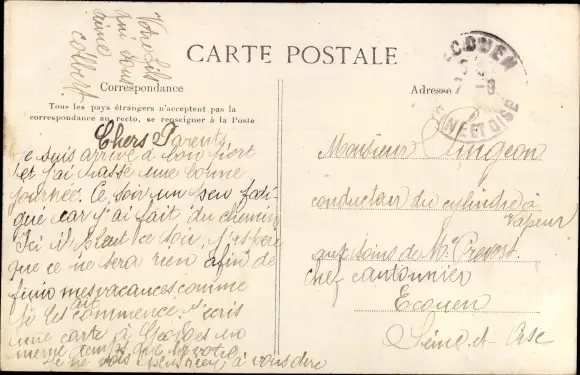 CARTE POSTALE
Correspondance
Tous les pays étrangers n'acceptent pas la
correspondance au recto, se renseigner à la Poste
Chers Parents
Je suis arrivé à bon port
et j'ai passé une bonne
journée. Ce soir un peu fati-
gué car j'ai fait du chemin
Ici il pleut ce soir, j'espère
que ce ne sera rien afin de
finir mes vacances comme
je les ai commencé. J'écris
une carte à Georges en
même temps que la votre
Je ne vois plus rien à vous dire
Votre fils
qui vous
aime
Colbert
Adresse
ECOUEN
SEINE ET OISE
Monsieur Pingeon
conducteur du cylindre à
Vapeur
aux soins de Mr Prevost
chef cantonnier
Ecouen
Seine-et-Oise